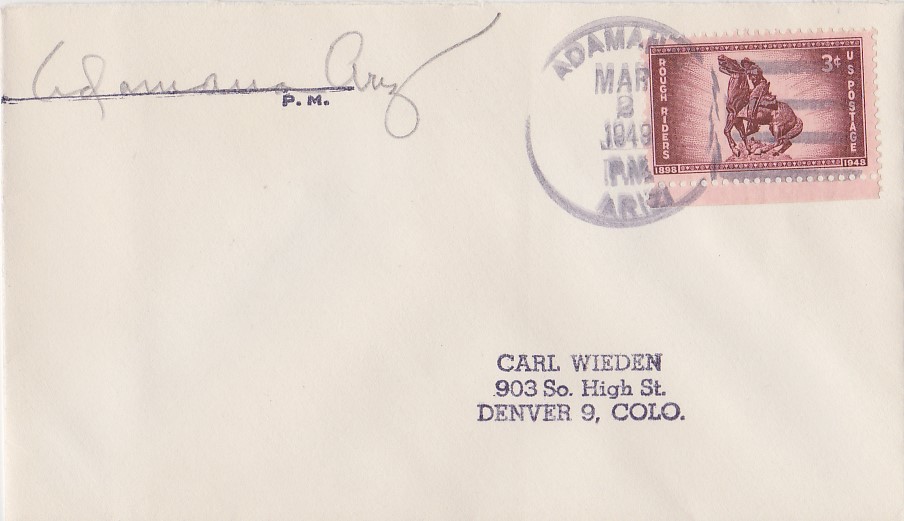 Adamana Ariz
P.M.
ADAMANA
MAR
2
1949
P.M.
ARIZ
ROUGH RIDERS
3¢
U S POSTAGE
1898
1948
CARL WIEDEN
903 So. High St.
DENVER 9, COLO.